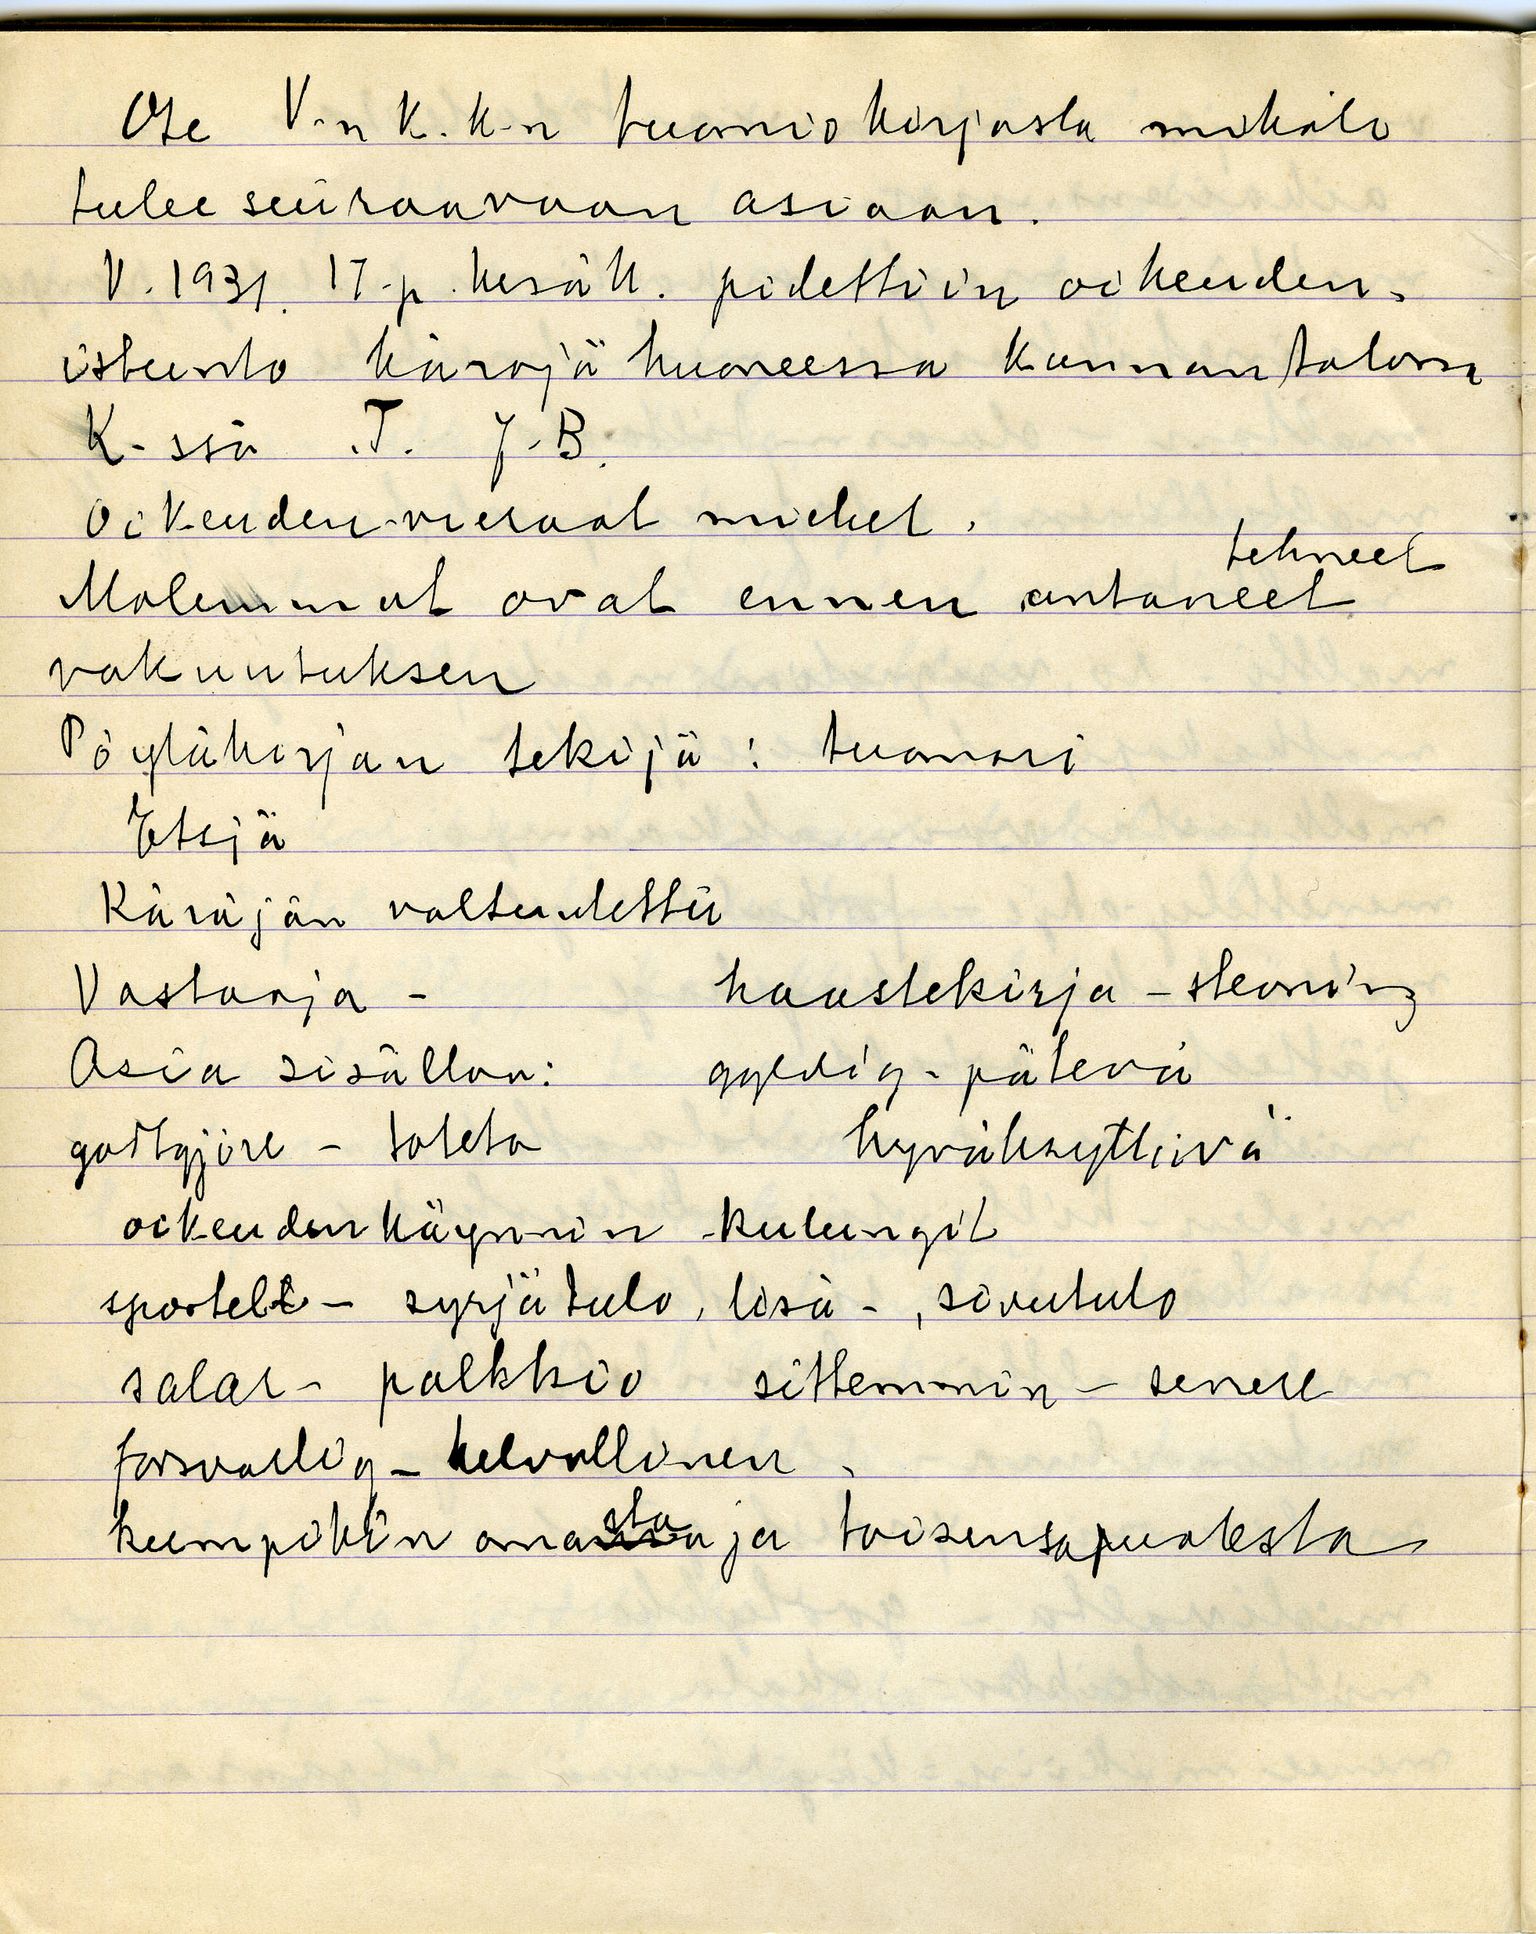 Ote V-n K.K-n tuomiokirjasta mikäli
tulee seuraavaan asiaan.
V. 1931. 17.p. kesäk. pidettiin oikeuden-
istunto käräjähuoneessa Kunnantalossa
K-ssä .T. J.B.
Oikeuden vieraat miehet.
tehneet
Molemmat ovat ennen antaneet
vakuutuksen
Pöytäkirjan tekijä: tuomari
Etsjä
Käräjän valtuutettu
Vastaaja - haastekirja - stevning
Asia sisältöä: gyldig - pätevä
godtgjöre - toteta hyväksyttävä
oikeudenkäynnin kulungit
sportel - syrjätulo, lisä-, sivutulo
salær - palkkio sittemmin - senere
forsvarlig - kelvollinen
kumpikin omasta ja toisensa puolesta